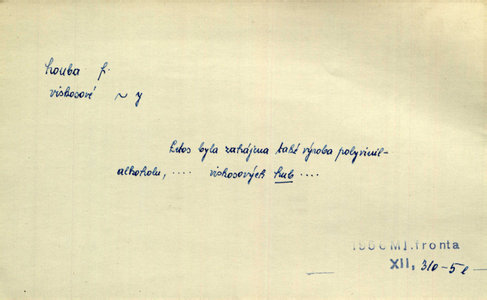 houba f.
viskosové ~ y
Letos byla zahájena také výroba polyvinil-
alkoholu, .... viskosových hub ....
1950 Ml. fronta
XII, 310-5